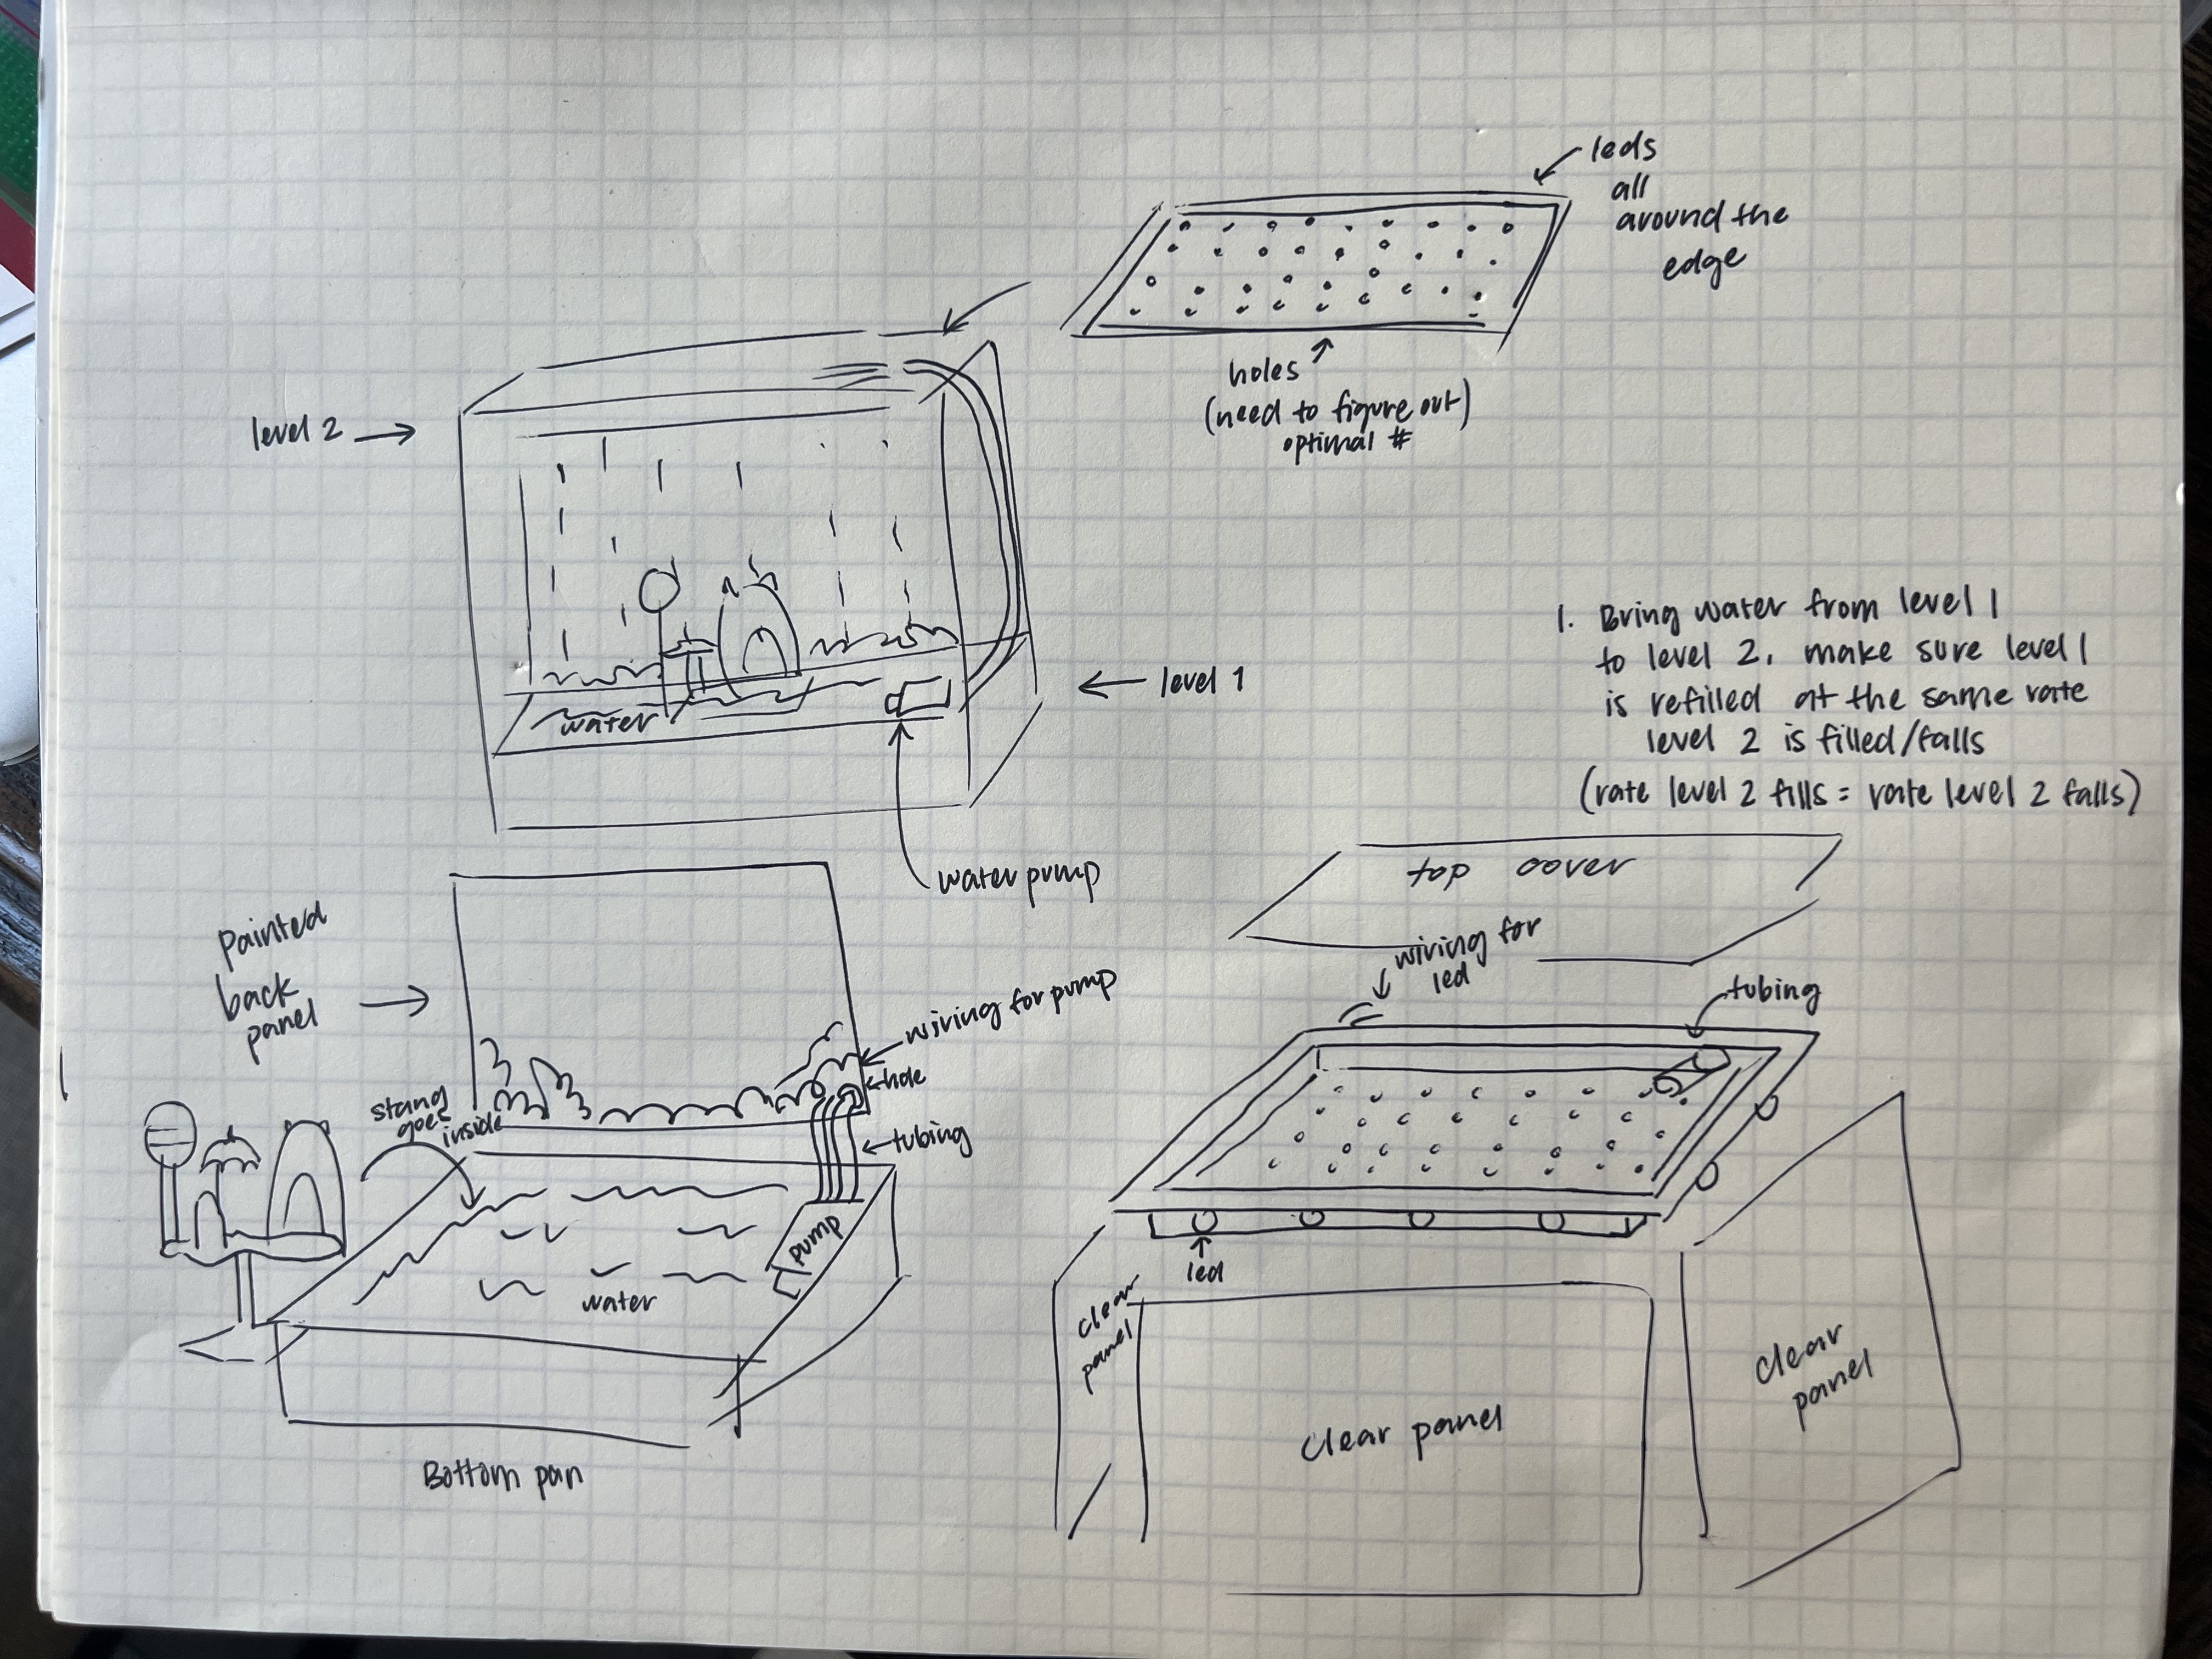 leds
all
around the
edge
holes
(need to figure out)
optimal #
level 2
level 1
water
water pump
1. Bring water from level 1
to level 2, make sure level 1
is refilled at the same rate
level 2 is filled/falls
(rate level 2 fills = rate level 2 falls)
Painted
back
panel
wiring for pump
hole
tubing
goes
inside
pump
water
Bottom pan
top cover
wiring for
led
tubing
led
clear
panel
clear panel
clear
panel